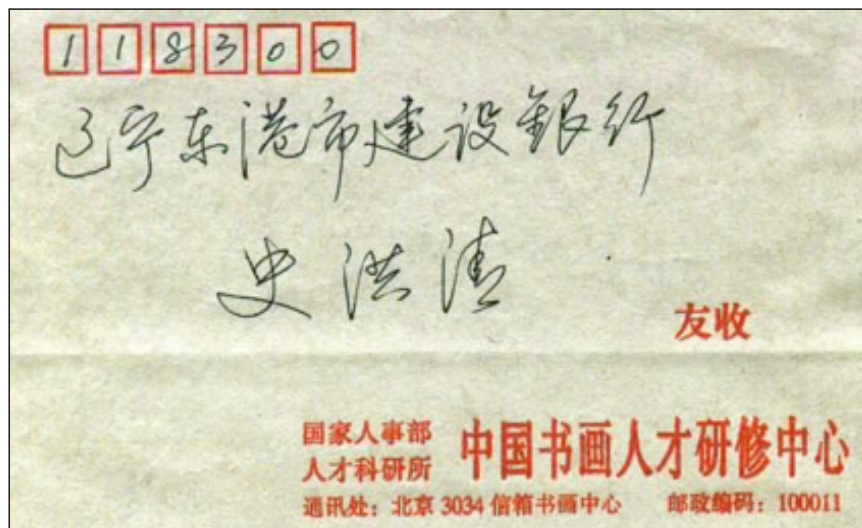 118300
辽宁东港市建设银行
史洪清
友收
国家人事部
人才科研所
中国书画人才研修中心
通讯处：北京3034信箱书画中心 邮政编码：100011